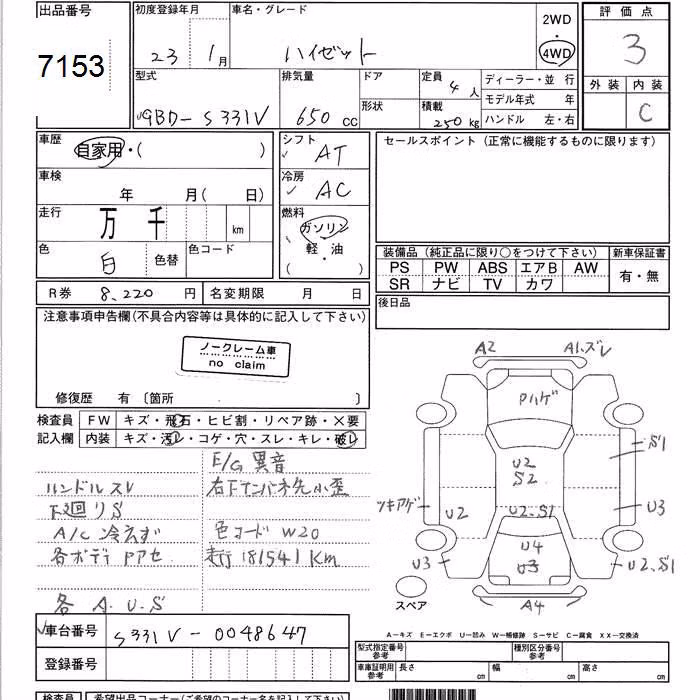 出品番号
7153
初度登録年月
23 1月
車名・グレード
ハイゼット
2WD
・
4WD
評価点
3
外装 内装
C
型式
GBD-S331V
排気量
650 cc
ドア
形状
定員 4人
積載 250kg
ディーラー・並行
モデル年式 年
ハンドル 左・右
車歴
自家用・( )
シフト
AT
車検
年 月(日)
冷房
AC
走行
万 千 km
燃料
ガソリン
軽・油
( )
色
白
色替
色コード
R券 8,220円
名変期限 月 日
セールスポイント (正常に機能するものに限ります)
装備品 (純正品に限り○をつけて下さい)
新車保証書
PS PW ABS エアB AW
SR ナビ TV カワ
有・無
後日品
注意事項申告欄(不具合内容等は具体的に記入して下さい)
ノークレーム車
no claim
修復歴 有 〔箇所 〕
検査員
記入欄
FW キズ・飛石・ヒビ割・リペア跡・×要
内装 キズ・汚レ・コゲ・穴・スレ・キレ・破レ
E/G 異音
ハンドルスレ
右下インパネ先小歪
下廻りS
A/C 冷えず
色コード W20
各ボディ Pアセ
走行 181541Km
各 A.U.S
車台番号
S331V-0048647
登録番号
A2
A1.ズレ
Pハゲ
U2
S2
S1
ツキアゲ
U2
U2.S1
U3
U4
U3
U3
U2.S1
スペア
A4
A-キズ E-エクボ U-凹み W-補修跡 S-サビ C-腐食 XX-交換済
型式指定番号
参考
種別区分番号
参考
車庫証明用
参考
長さ cm
幅 cm
高さ cm
検査員
希望出品コーナー(ご希望のコーナー名を記入下さい)